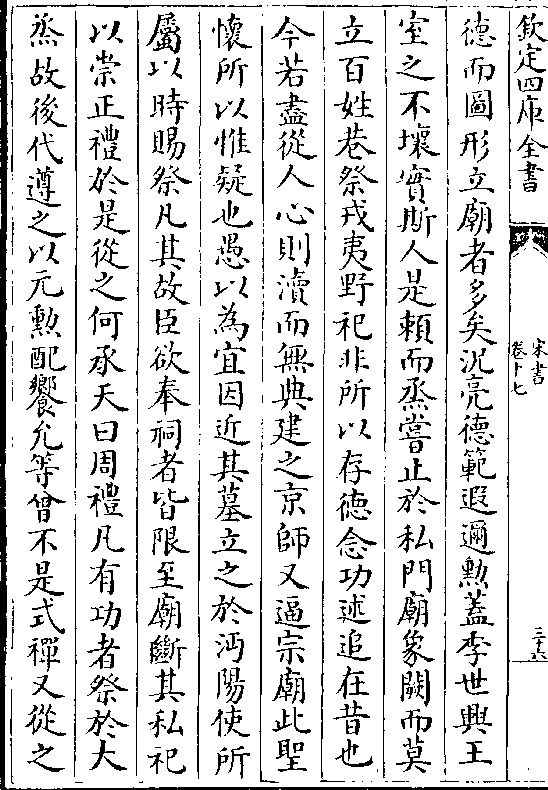 欽定四庫全書
宋書
卷十七
三六
德而圖形立廟者多矣況亮德範遐邇勲蓋季世興王
室之不壞實斯人是賴而烝嘗止於私門廟象闕而莫
立百姓巷祭戎夷野祀非所以存德念功述追在昔也
今若盡從人心則瀆而無典建之京師又逼宗廟此聖
懷所以惟疑也愚以為宜因近其墓立之於沔陽使所
屬以時賜祭凡其故臣欲奉祠者皆限至廟斷其私祀
以崇正禮於是從之何承天曰周禮凡有功者祭於大
烝故後代遵之以元勲配饗允等曾不是式禪又從之